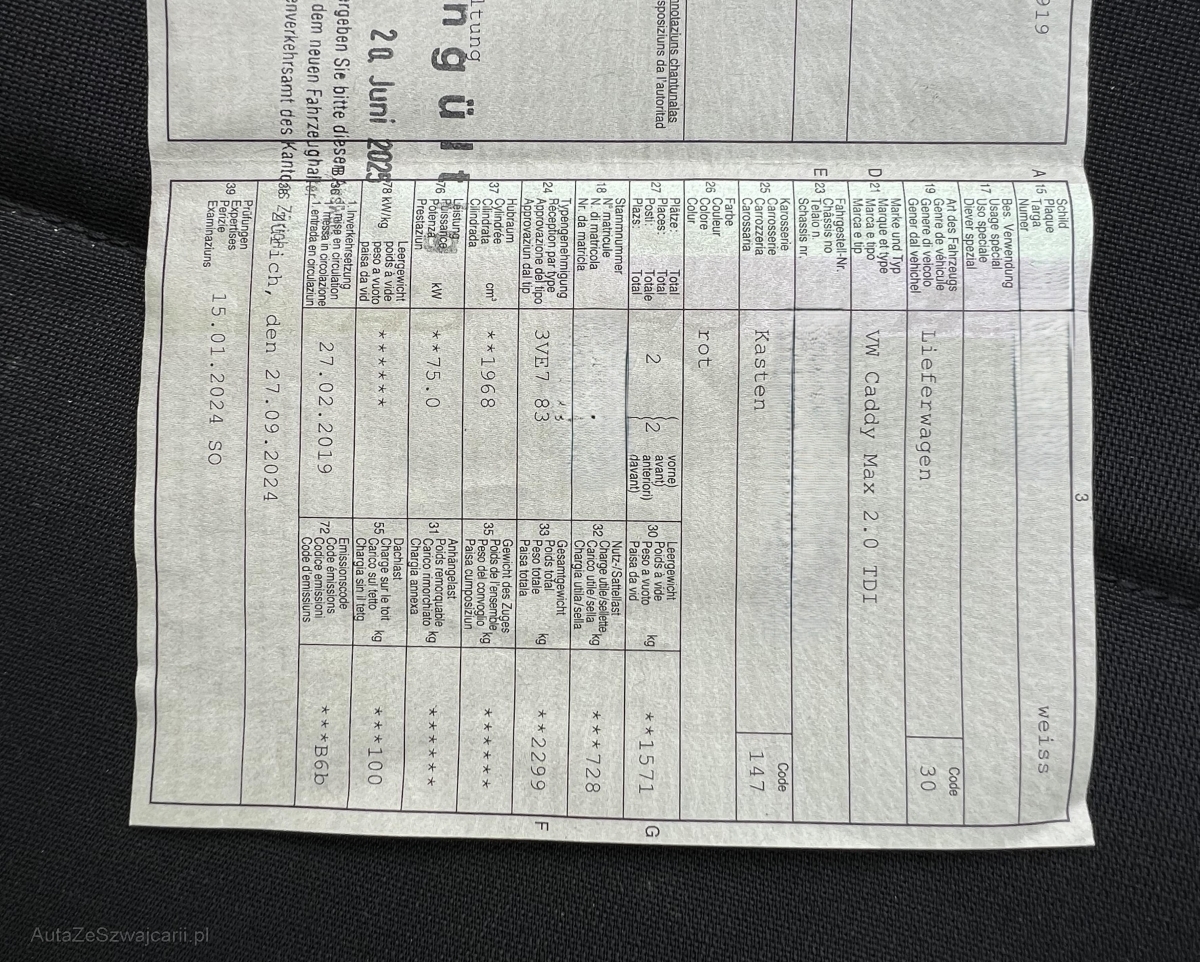 919
nnotaziuns chantunalas
sposiziuns da l'autoritad
ltung
ngült
20. Juni 2025
ergeben Sie bitte diesen
dem neuen Fahrzeughalter
enverkehrsamt des Kantons Zürich
3
A 15 Schild
Plaque
Targa
Numer
weiss
17 Bes. Verwendung
Usage spécial
Uso speciale
Diever spezial
19 Art des Fahrzeugs
Genre de véhicule
Genere di veicolo
Gener dal vehichel
Lieferwagen
Code
30
D 21 Marke und Typ
Marque et type
Marca e tipo
Marca e tip
VW Caddy Max 2.0 TDI
E 23 Fahrgestell-Nr.
Châssis no
Telaio n.
Schassis nr.
25 Karosserie
Carrosserie
Carrozzeria
Carossaria
Kasten
Code
147
26 Farbe
Couleur
Colore
Colur
rot
27 Plätze: Total
Places: Total
Posti: Totale
Plazs: Total
2
2
vorne)
avant)
anteriori)
davant)
30 Leergewicht
Poids à vide
Peso a vuoto
Paisa da vid
kg
**1571
G
18 Stammnummer
N° matricule
N. di matricola
Nr. da matricla
32 Nutz-/Sattellast
Charge utile/sellette
Carico utile/sella
Chargia utila/sella
kg
***728
24 Typengenehmigung
Réception par type
Approvazione del tipo
Approvaziun dal tip
3VE7 83
33 Gesamtgewicht
Poids total
Peso totale
Paisa totala
kg
**2299
F
37 Hubraum
Cylindrée
Cilindrata
Cilindrada
cm³
**1968
35 Gewicht des Zuges
Poids de l'ensemble
Peso del convoglio
Paisa cumposiziun
kg
******
76 Leistung
Puissance
Potenza
Prestaziun
kW
**75.0
31 Anhängelast
Poids remorquable
Carico rimorchiato
Chargia annexa
kg
******
78 kW/kg
Leergewicht
poids à vide
peso a vuoto
paisa da vid
******
55 Dachlast
Charge sur le toit
Carico sul tetto
Chargia sin il tetg
kg
***100
B 36 1. Inverkehrsetzung
1re mise en circulation
1. messa in circolazione
1. entrada en circulaziun
27.02.2019
72 Emissionscode
Code émissions
Codice emissioni
Code d'emissiuns
***B6b
38 Zürich, den 27.09.2024
39 Prüfungen
Expertises
Perizie
Examinaziuns
15.01.2024 SO
AutaZeSzwajcarii.pl